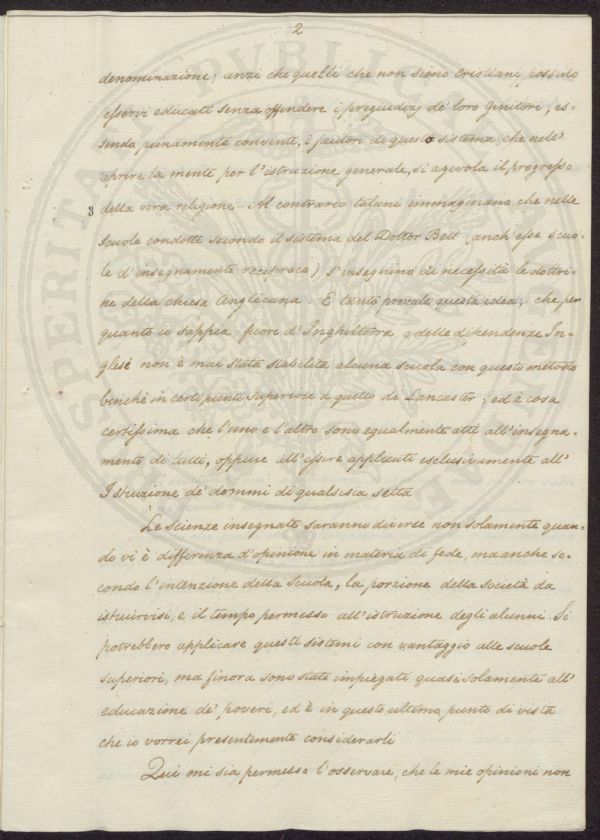 2
denominazione; anzi che quelli che non sieno Cristiani possino
esservi educati senza offendere i pregiudizj de' loro genitori, es-
sendo pienamente convinti, i fautori di questo sistema, che nell'
aprire la mente per l'istruzione generale, si agevola il progresso
3 della vera religione. Al contrario taluni immaginano che nelle
scuole condotte secondo il sistema del Dottor Bell (anch'esse scuo-
le d'insegnamento reciproco) s'insegnino di necessità le dottri-
ne della chiesa Anglicana. E tanto prevale questa idea, che per
quanto io sappia, fuori d'Inghilterra, e delle dipendenze In-
glesi non è mai stata stabilita alcuna scuola con questo metodo
benchè in certi punti superiore a quello di Lancaster; ed è cosa
certissima che l'uno e l'altro sono egualmente atti all'insegna-
mento di tutti, oppure all'essere applicati esclusivamente all'
Istruzione de' dommi di qualsisia setta
Le scienze insegnate saranno diverse non solamente quan-
do vi è differenza d'opinione in materia di fede, ma anche se-
condo l'intenzione della Scuola, la porzione della società da
istruirvisi, e il tempo permesso all'istruzione degli alunni. Si
potrebbero applicare questi sistemi con vantaggio alle scuole
superiori, ma finora sono stati impiegati quasi solamente all'
educazione de' poveri, ed è in questo ultimo punto di vista
che io vorrei presentemente considerarli
Qui mi sia permesso l'osservare, che le mie opinioni non